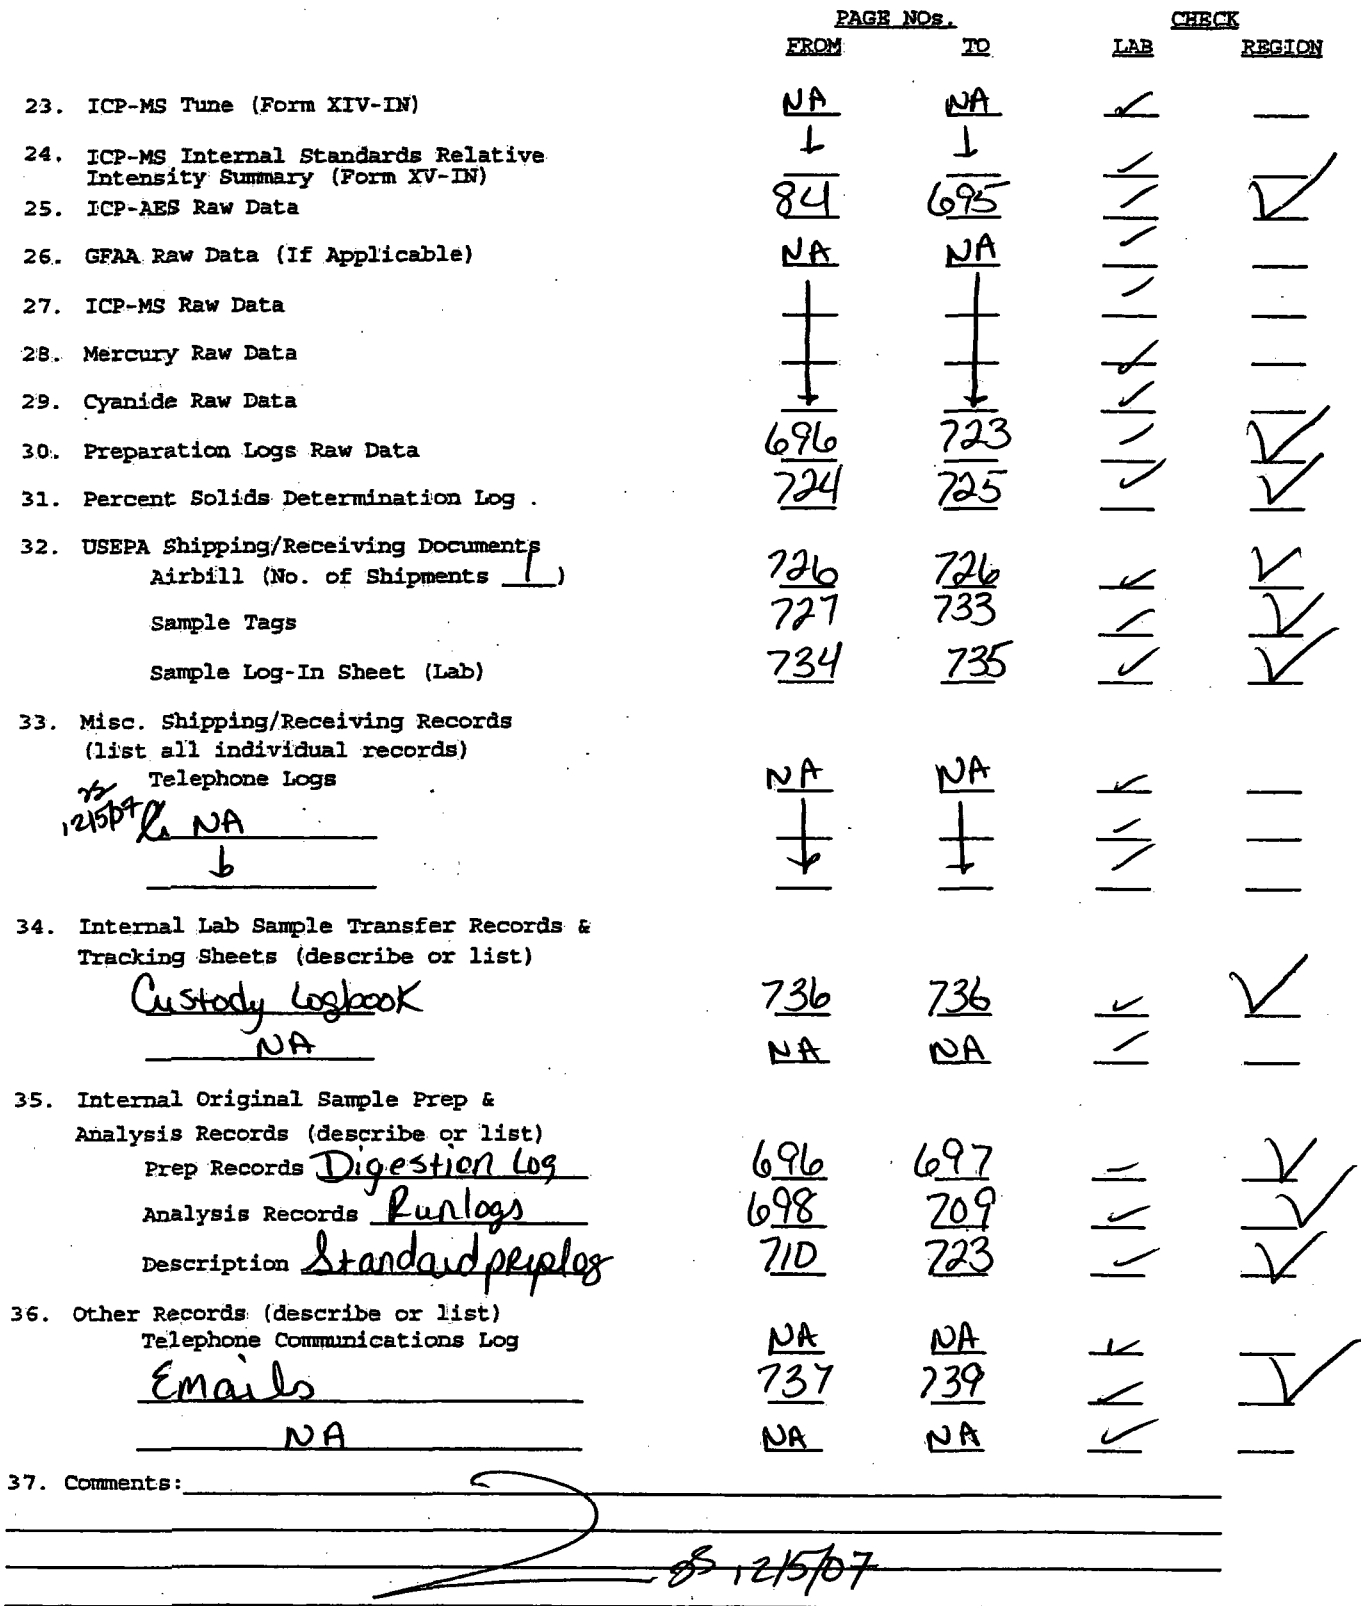 PAGE NOs. CHECK
FROM TO LAB REGION
23. ICP-MS Tune (Form XIV-IN) NA NA ✓
24. ICP-MS Internal Standards Relative
Intensity Summary (Form XV-IN) ↓ ↓ ✓
25. ICP-AES Raw Data 84 695 ✓ ✓
26. GFAA Raw Data (If Applicable) NA NA ✓
27. ICP-MS Raw Data ✓
28. Mercury Raw Data ✓
29. Cyanide Raw Data ✓
30. Preparation Logs Raw Data 696 723 ✓ ✓
31. Percent Solids Determination Log . 724 725 ✓ ✓
32. USEPA Shipping/Receiving Documents
Airbill (No. of Shipments 1 ) 726 726 ✓ ✓
Sample Tags 727 733 ✓ ✓
Sample Log-In Sheet (Lab) 734 735 ✓ ✓
33. Misc. Shipping/Receiving Records
(list all individual records)
Telephone Logs NA NA ✓
12/5/07 NA ✓
↓ ✓
34. Internal Lab Sample Transfer Records &
Tracking Sheets (describe or list)
Custody Logbook 736 736 ✓ ✓
NA NA NA ✓
35. Internal Original Sample Prep &
Analysis Records (describe or list)
Prep Records Digestion Log 696 697 ✓ ✓
Analysis Records Runlogs 698 709 ✓ ✓
Description Standard preplog 710 723 ✓ ✓
36. Other Records (describe or list)
Telephone Communications Log NA NA ✓
Emails 737 739 ✓ ✓
NA NA NA ✓
37. Comments:
12/5/07